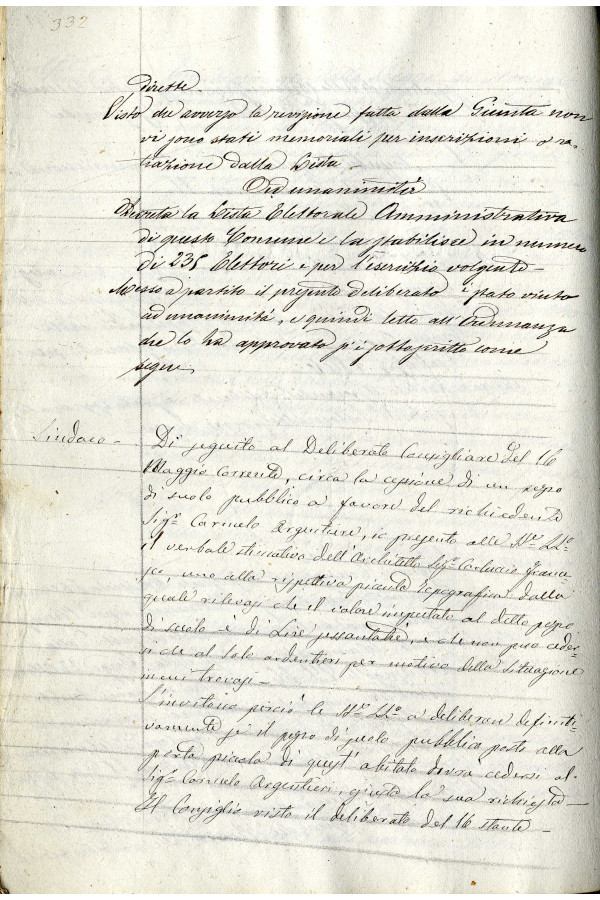 332
dirette.
Visto che avverso la revizione fatta dalla Giunta non
vi sono stati memoriali per inserizioni o ra-
trazione dalla Lista.
Ad unanimità
Decreta la Lista Elettorale Amministrativa
di questo Comune e la stabilisce in numero
di 235 Elettori e per l'esercizio volgente -
Messo a partito il presente deliberato è stato vinto
ad unanimità, e quindi letto all'Adunnanza
che lo ha approvato si è sottoscritto come
segue
Sindaco - Di seguito al Deliberato Consigliare del 16
Maggio corrente, circa la cessione di un pezzo
di suolo pubblico a favore del richiedente
Sigr. Carmelo Argentiere, io presento alle
il verbale estimativo dell'Architetto Sigr. Carluccio France-
sco, uno alla rispettiva piccola topografica dalla
quale rilevasi che il valore imputato al detto pezzo
di suolo è di Lire sessantatre, e che non può ceder-
si che al solo ardentieri per motivo della situazione
in cui trovasi -
S'invitano perciò le a deliberare definiti-
vamente se il pezzo di suolo pubblico posto alla
porta piccola di quest'abitato dovrà cedersi al
Sigr. Carmelo Argentieri, giusta la sua richiesta -
Il Consiglio visto il deliberato del 16 stante -